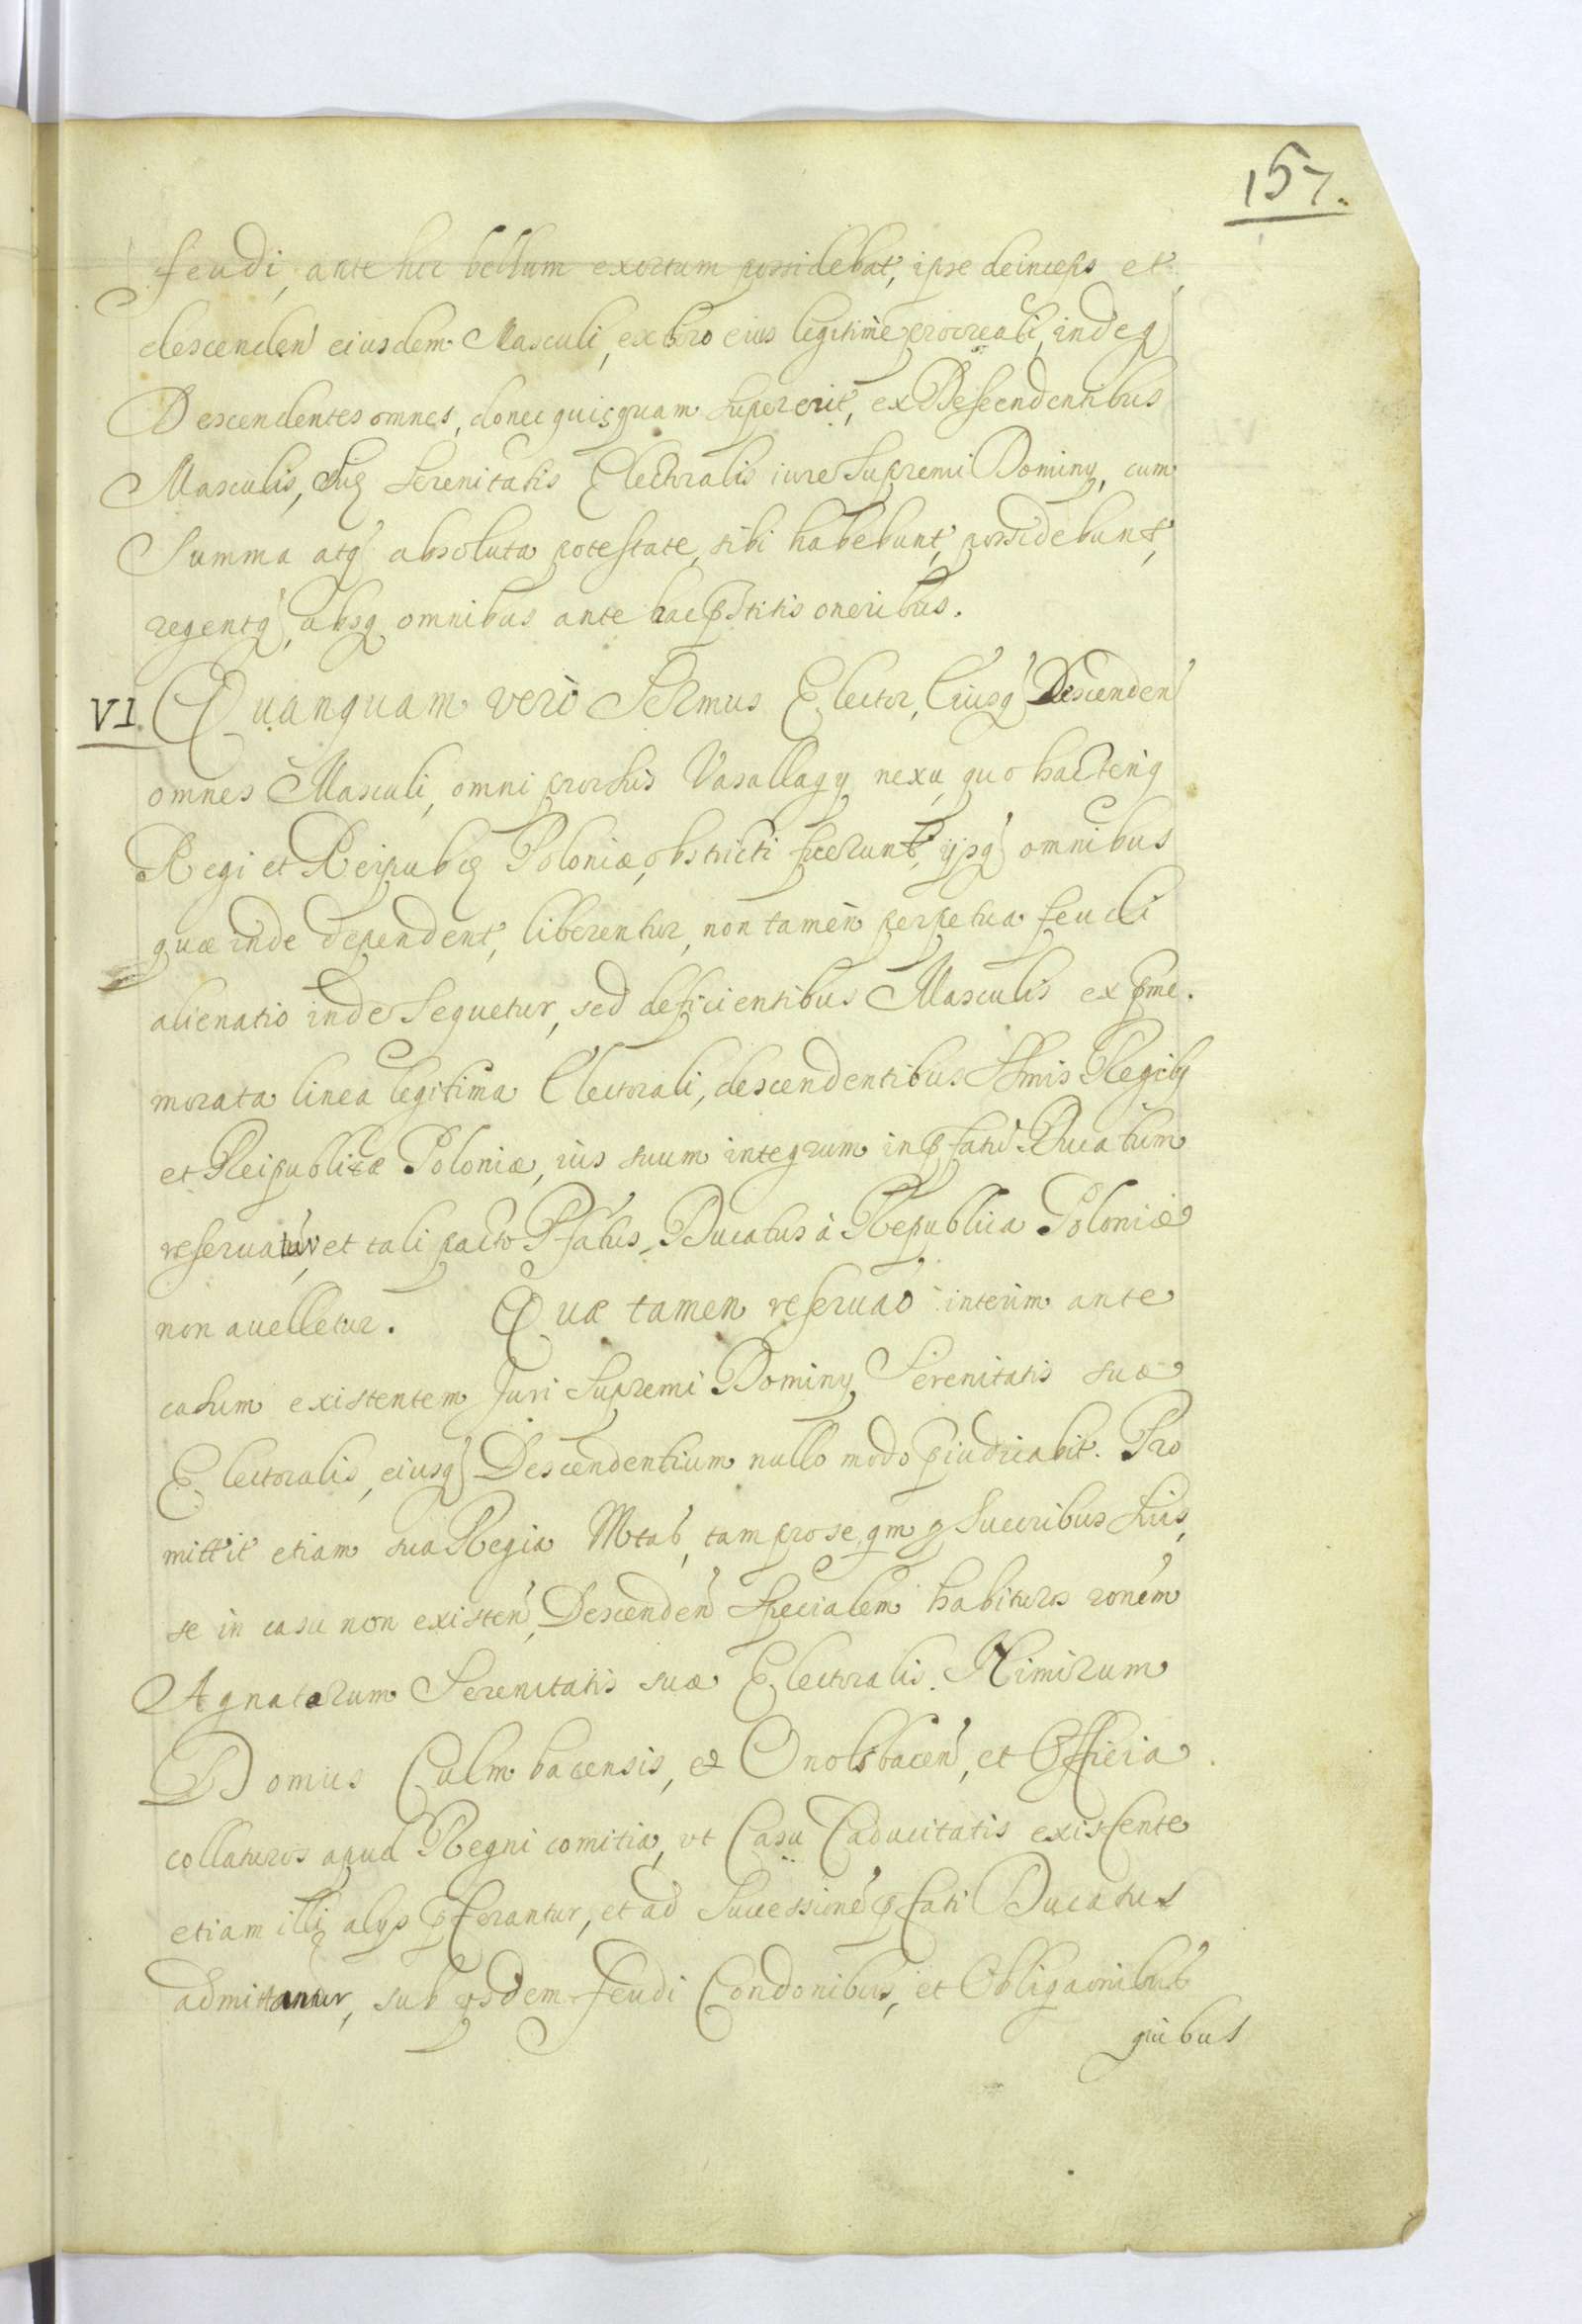 157.
feudi, ante hoc bellum exortum possidebat, ipse deinceps et
descenden eiusdem Masculi, ex libro eius legitime procreati, indeq
Descendentes omnes, donec quisquam supererit, ex Descendentibus
Masculis, Suę Serenitatis Electoralis iure Supremi Dominy, cum
Summa atq absoluta potestate, sibi habebunt, possidebunt,
regentq, absq omnibus ante hac pstitis oneribus.
VI. Quanquam verò Sermus Elector, Eiusq Descenden
omnes Masculi, omni prorsus Vasallagy nexu, quo hactenq
Regi et Reipubę Poloniæ, obstricti fuerunt, ijsq omnibus
quæ inde dependent, liberentur, non tamen perpetua feudi
alienatio inde Sequetur, sed deficientibus Masculis ex pme.
morata linea legitima Electorali, descendentibus Srmis Regibq
et Reipublicæ Poloniæ, ius suum integrum in pfatu Ducatum
reseruatur, et tali pacto Pfatus Ducatus à Republica Poloniæ
non auelletur. Quæ tamen reseruao interim ante
casum existentem Juri Supremi Dominy Serenitatis suæ
Electoralis, eiusq Descendentium nullo modo piudicabit. Pro
mittit etiam sua Regia Mtas, tam pro se, qm p Succribus suis,
se in casu non existen, Descenden specialem habituros ronem
Agnatorum Serenitatis suæ Electoralis. Nimirum
Domus Culmbacensis, et Onolsbacen, et Officia
collaturos apud Regni comitia, vt Casu Caducitatis existente
etiam illi alys pferantur, et ad Successione pfati Ducatus
admittantur, sub ysdem feudi Condonibus, et Obligaonibus
quibus